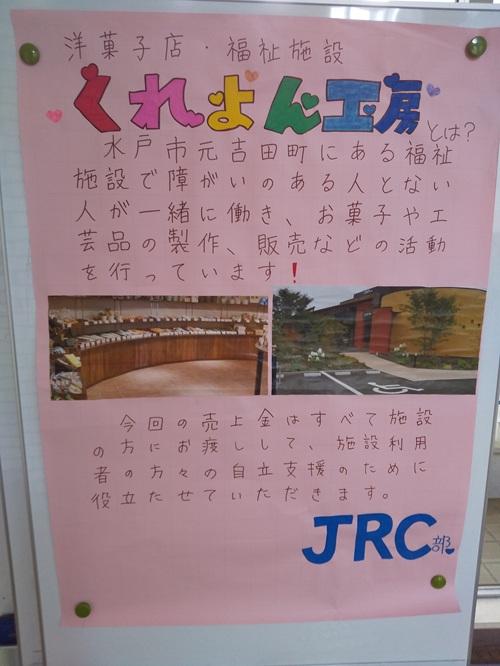 洋菓子店・福祉施設
くれよん工房とは?
水戸市元吉田町にある福祉
施設で障がいのある人とない
人が一緒に働き、お菓子や工
芸品の製作、販売などの活動
を行っています!
今回の売上金はすべて施設
の方にお渡しして、施設利用
者の方々の自立支援のために
役立たせていただきます。
JRC部